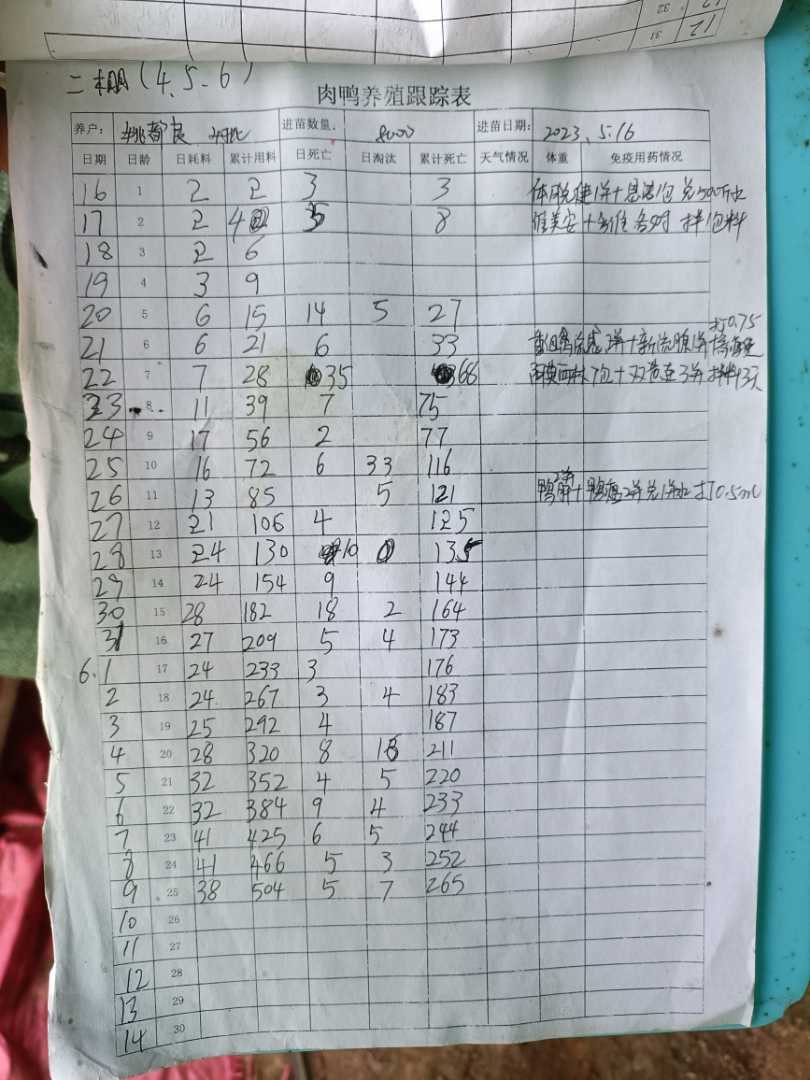 12
32
31
12
二棚(4、5-6)
肉鸭养殖跟踪表
养户: 进苗数量. 8000 进苗日期: 2023、5.16
日期 日龄 日耗料 累计用料 日死亡 日淘汰 累计死亡 天气情况 体重 免疫用药情况
16 1 2 2 3 3
17 2 2 4 5 8
18 3 2 6
19 4 3 9
20 5 6 15 14 5 27
打0.75
21 6 6 21 6 33
22 7 7 28 35 68
23 8 11 39 7 75
24 9 17 56 2 77
25 10 16 72 6 33 116
26 11 13 85 5 121 打0.5ml
27 12 21 106 4 125
28 13 24 130 10 135
29 14 24 154 9 144
30 15 28 182 18 2 164
31 16 27 209 5 4 173
6.1 17 24 233 3 176
2 18 24 267 3 4 183
3 19 25 292 4 187
4 20 28 320 8 18 211
5 21 32 352 4 5 220
6 22 32 384 9 4 233
7 23 41 425 6 5 244
8 24 41 466 5 3 252
9 25 38 504 5 7 265
10 26
11 27
12 28
13 29
14 30